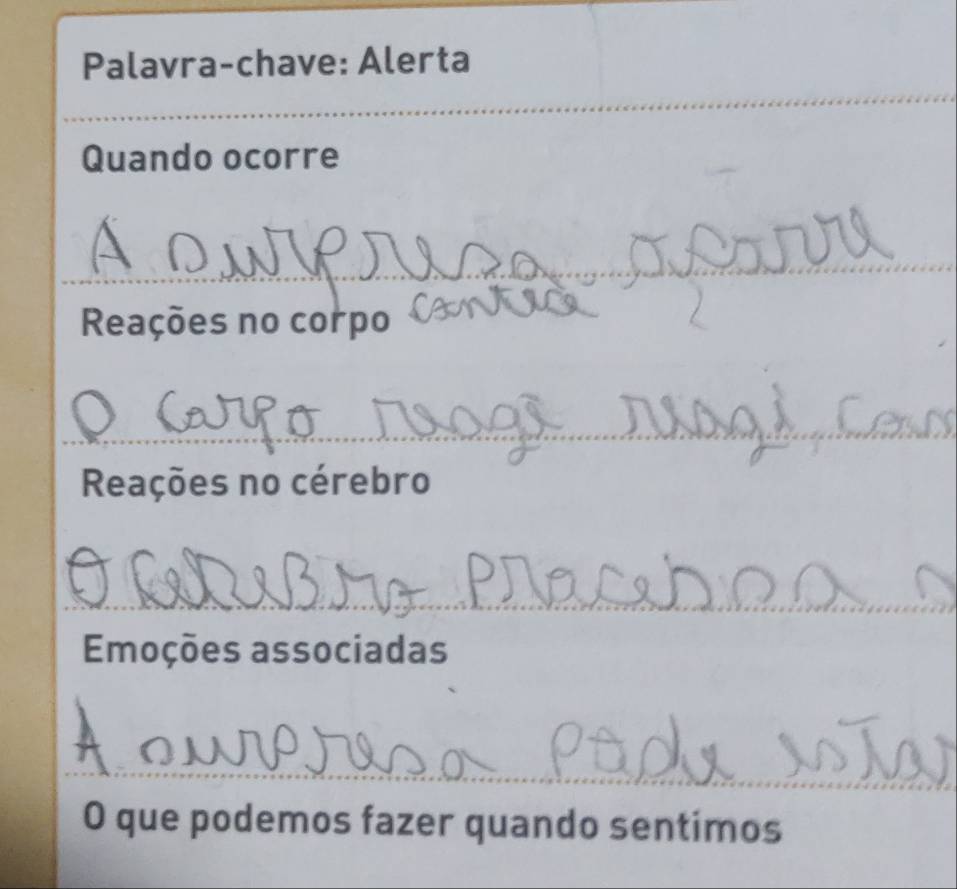 Palavra-chave: Alerta
Quando ocorre
A surpresa ocorre
Reações no corpo
O corpo reage reagi com
Reações no cérebro
O cerebro processa
Emoções associadas
A surpresa pode estar
O que podemos fazer quando sentimos